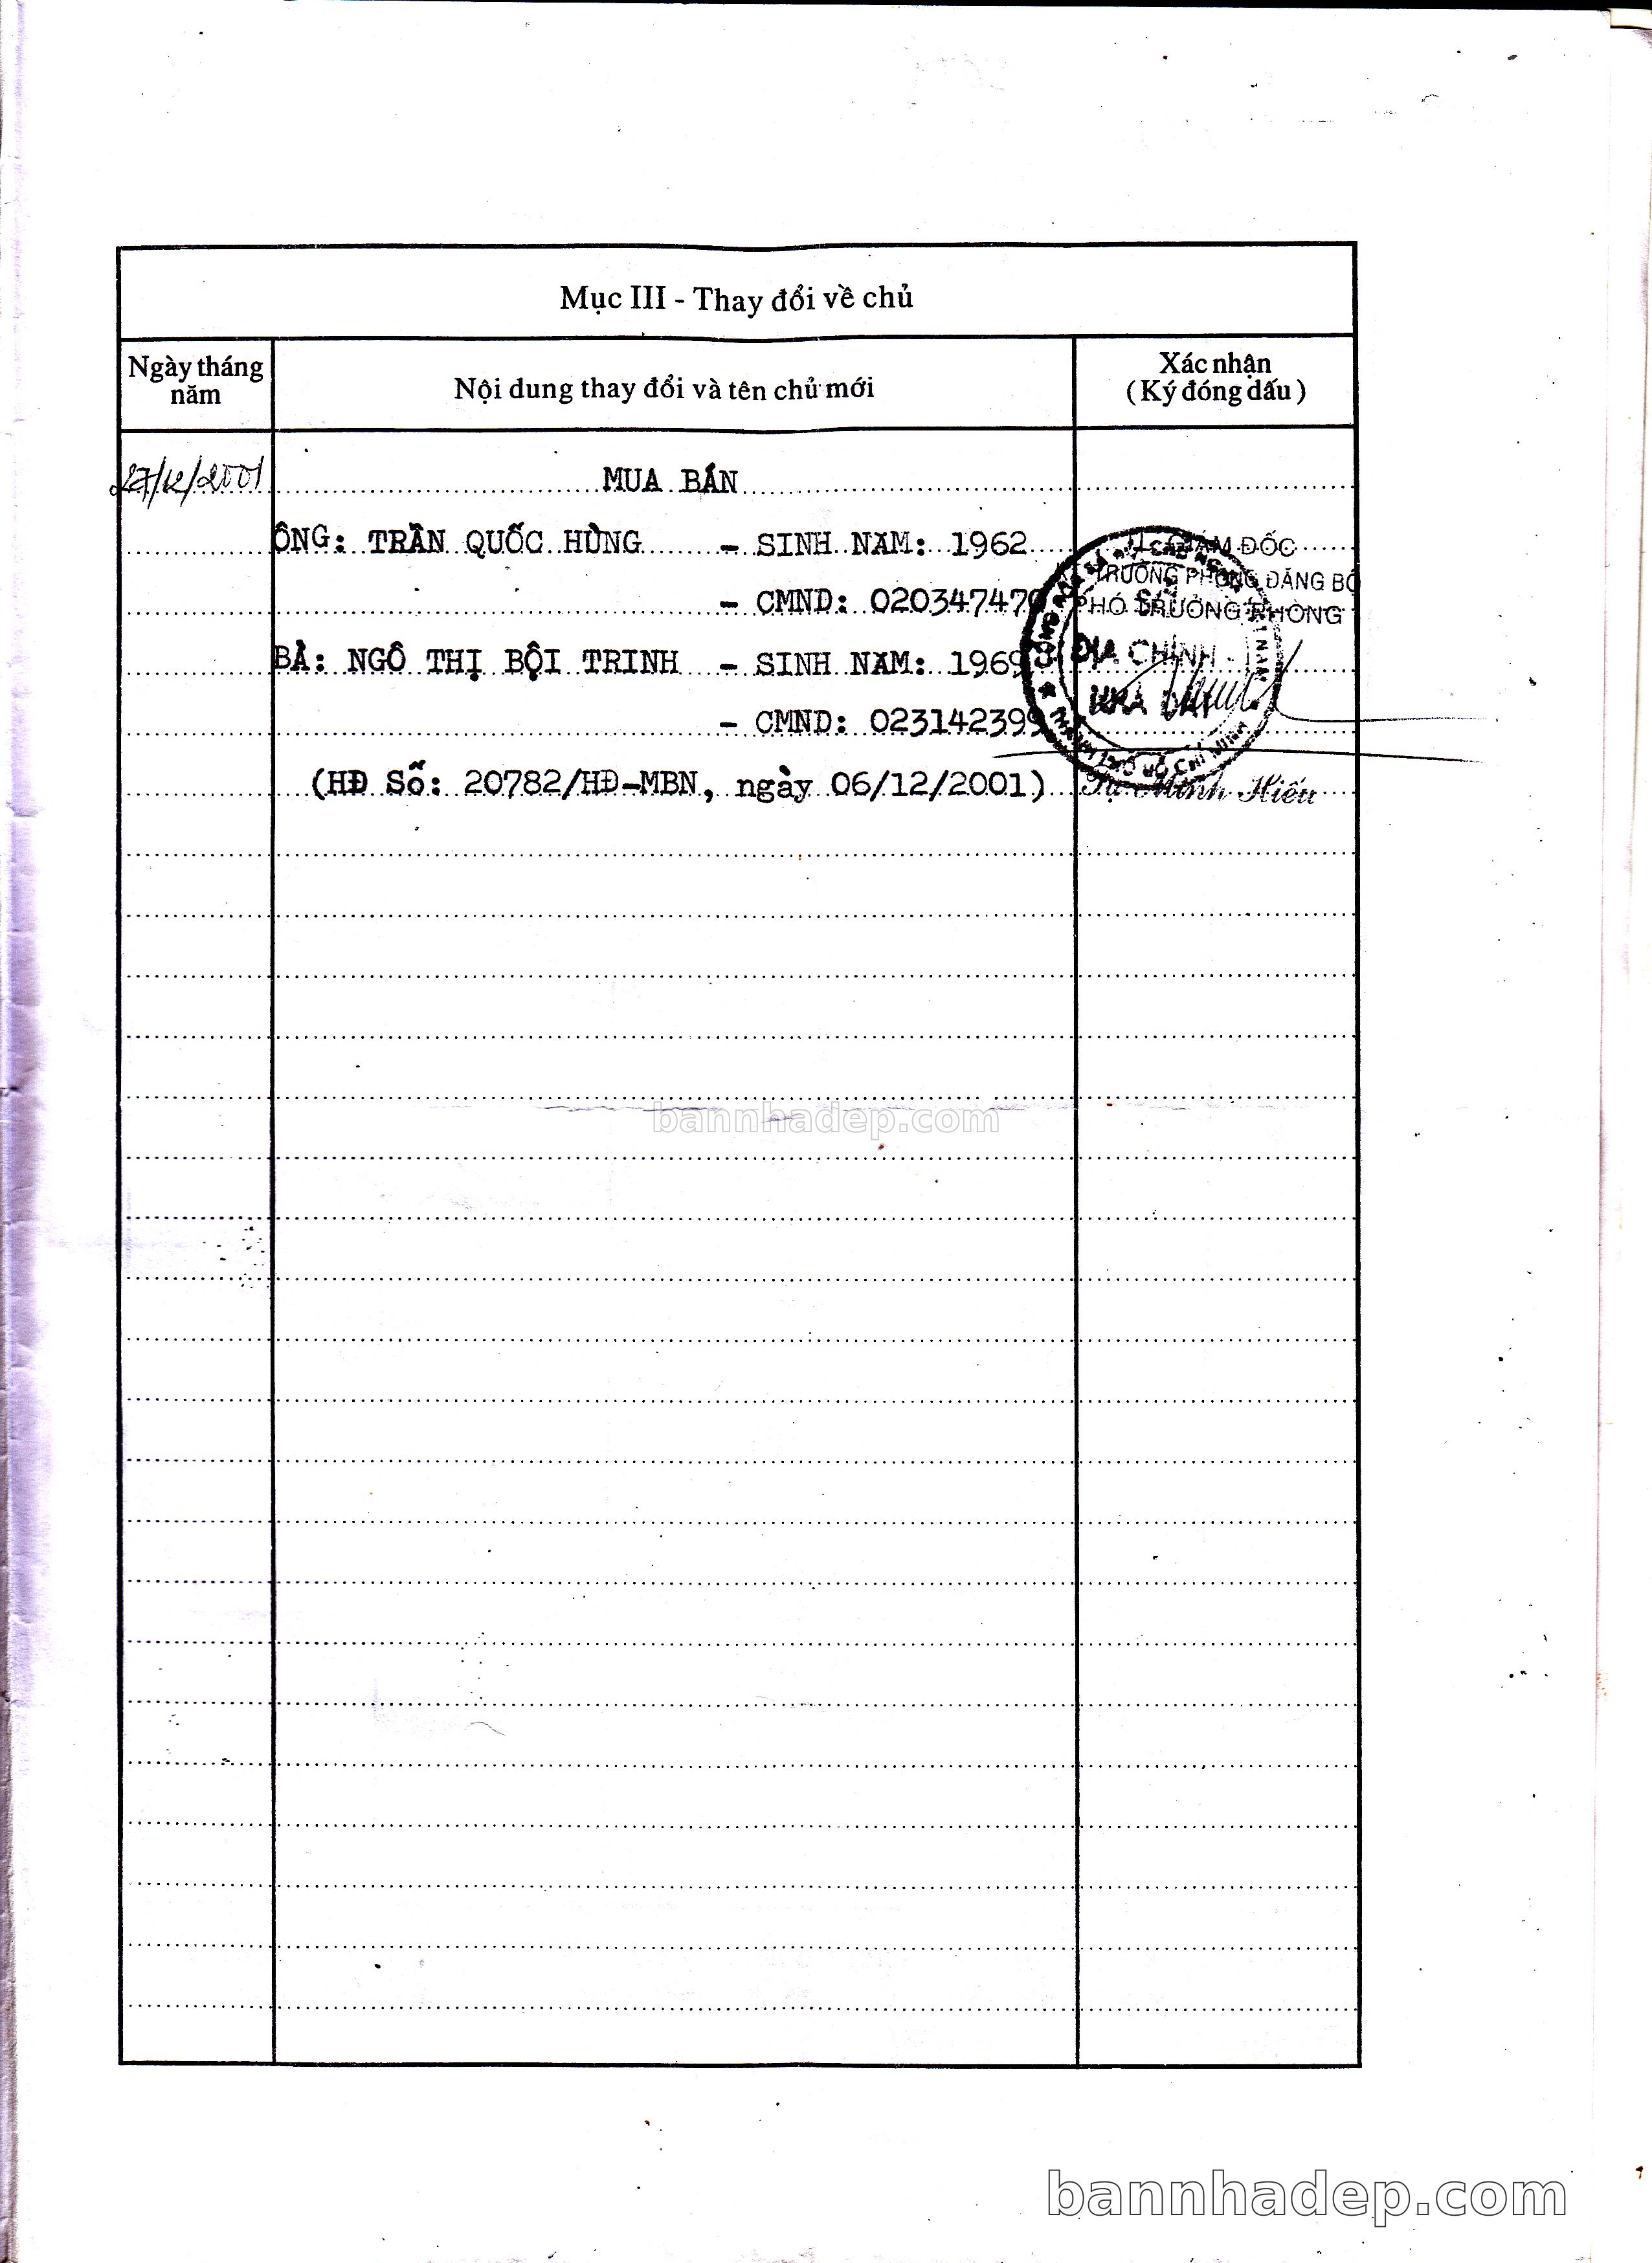 Mục III - Thay đổi về chủ
Ngày tháng năm
Nội dung thay đổi và tên chủ mới
Xác nhận
( Ký đóng dấu )
27/12/2001
MUA BÁN
ÔNG: TRẦN QUỐC HÙNG - SINH NĂM: 1962
- CMND: 020347470
BÀ: NGÔ THỊ BỘI TRINH - SINH NĂM: 1969
- CMND: 023142399
(HĐ Số: 20782/HĐ-MBN, ngày 06/12/2001)
GIÁM ĐỐC
TRƯỞNG PHÒNG ĐĂNG BỘ
PHÓ TRƯỞNG PHÒNG
SỞ
ĐỊA CHÍNH
NHÀ ĐẤT
Minh Hiếu
bannhadep.com
bannhadep.com